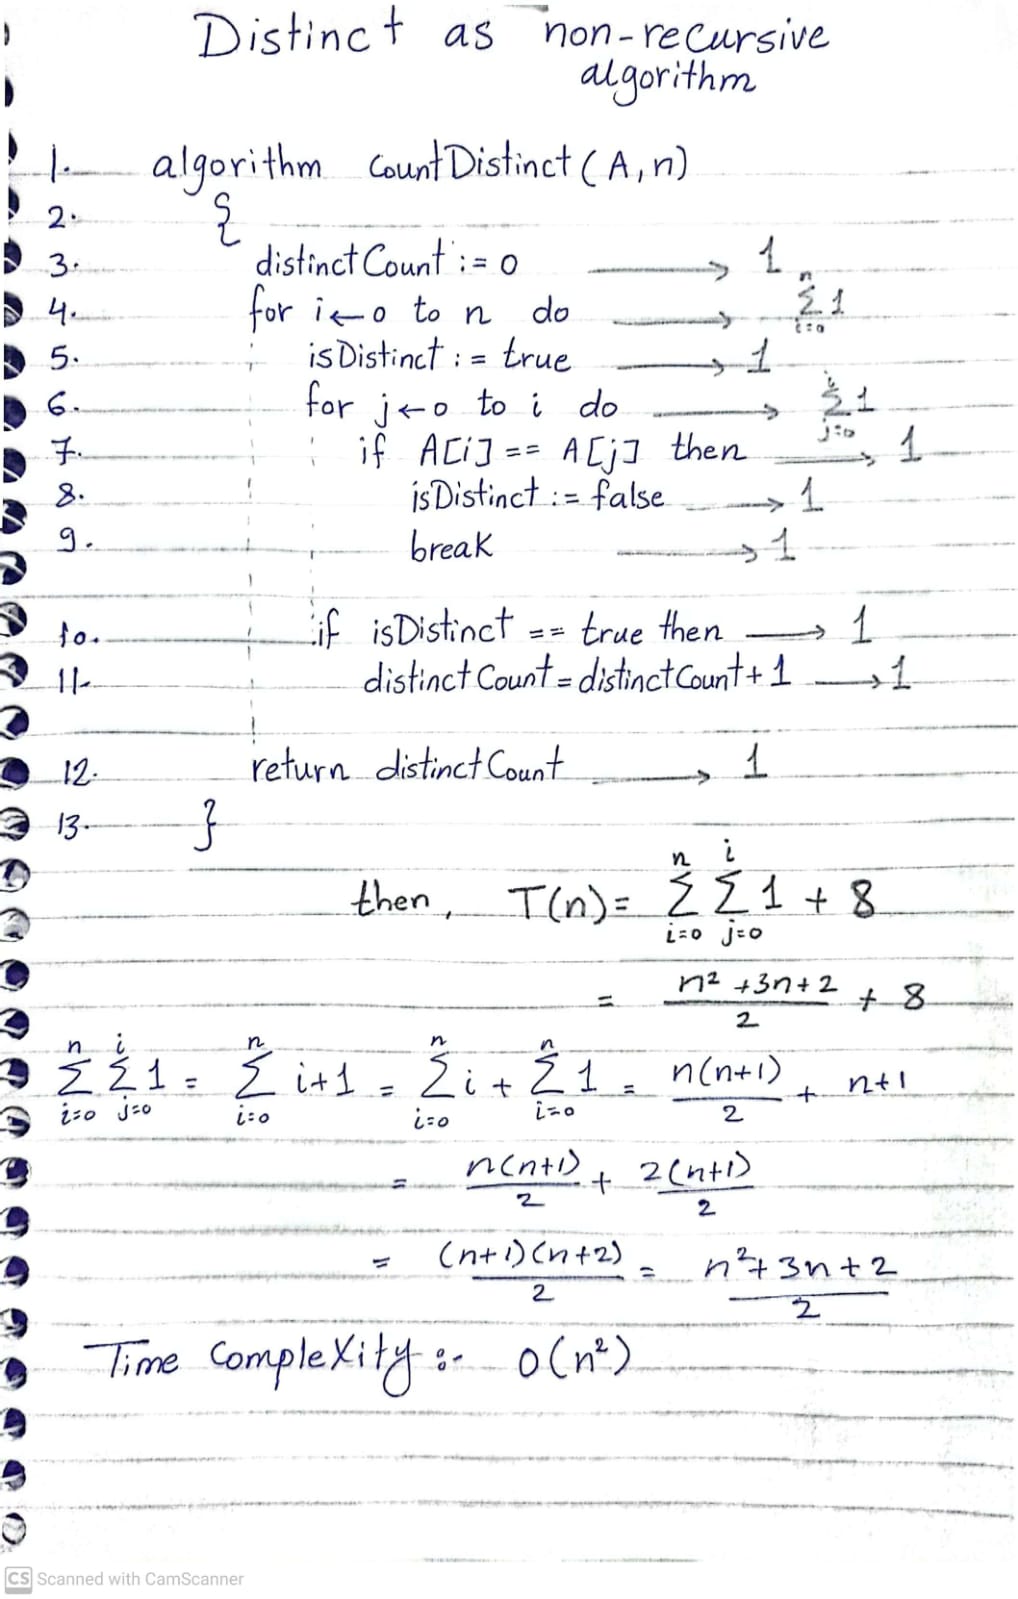 Distinct as non-recursive
algorithm
1. algorithm countDistinct(A,n)
2. {
3. distinctCount := 0 → 1
4. for i←0 to n do → n Σ 1 i=0
5. isDistinct := true → 1
6. for j←0 to i do → i Σ 1 j=0
7. if A[i] == A[j] then → 1
8. isDistinct := false → 1
9. break → 1
10. if isDistinct == true then → 1
11. distinctCount = distinctCount + 1 → 1
12. return distinctCount → 1
13. }
n i
then, T(n) = Σ Σ 1 + 8
i=0 j=0
= n² + 3n + 2 / 2 + 8
n i n n n
Σ Σ 1 = Σ i+1 = Σ i + Σ 1 = n(n+1) / 2 + n+1
i=0 j=0 i=0 i=0 i=0
= n(n+1) / 2 + 2(n+1) / 2
= (n+1)(n+2) / 2 = n² + 3n + 2 / 2
Time Complexity :- O(n²)
CS Scanned with CamScanner